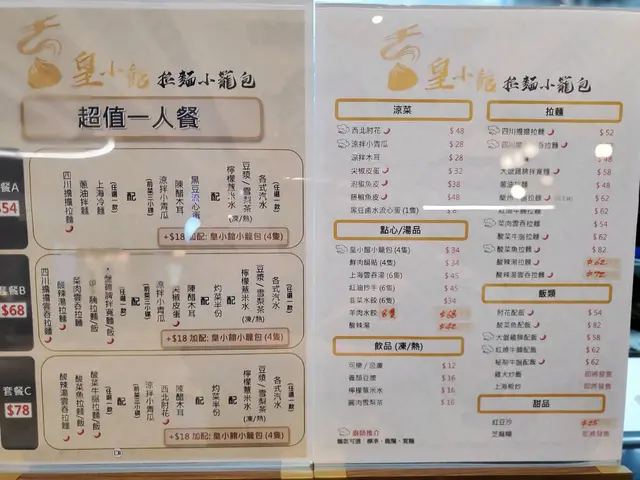 皇小館 拉麵小籠包
超值一人餐
餐A
$54
四川擔擔拉麵
蔥油拌麵
上海冷麵
(任選一款)
配
涼拌小青瓜
陳醋木耳
黑豆流心蛋
(前菜三小碟)
配
檸檬薏米水
豆漿/雪梨茶
各式汽水
(凍/熱)
(任選一款)
+$18 加配: 皇小館小籠包 (4隻)
套餐B
$68
四川擔擔雲吞拉麵
酸辣湯拉麵
菜肉雲吞拉麵
(任選一款)
配
涼拌小青瓜
陳醋木耳
尖椒皮蛋
(前菜三小碟)
配
灼菜半份
配
檸檬薏米水
豆漿/雪梨茶
各式汽水
(凍/熱)
(任選一款)
+$18 加配: 皇小館小籠包 (4隻)
套餐C
$78
酸辣湯雲吞拉麵
酸菜魚拉麵/飯
酸菜牛𦟌拉麵/飯
(任選一款)
配
涼拌小青瓜
西北肘花
陳醋木耳
(前菜三小碟)
配
灼菜半份
配
檸檬薏米水
豆漿/雪梨茶
各式汽水
(凍/熱)
(任選一款)
+$18 加配: 皇小館小籠包 (4隻)
皇小館 拉麵小籠包
涼菜
西北肘花 $ 48
涼拌小青瓜 $ 28
涼拌木耳 $ 28
尖椒皮蛋 $ 32
泡椒魚皮 $ 38
藤椒魚皮 $ 48
黑豆鹵水流心蛋 (1隻) $ 8
點心/湯品
皇小館小籠包 (4隻) $ 34
鮮肉鍋貼 (4隻) $ 34
上海雲吞湯 (6隻) $ 45
紅油炒手 (6隻) $ 45
韭菜水餃 (6隻) $ 34
羊肉水餃 8隻 $ 68
酸辣湯
飲品 (凍/熱)
可樂 / 忌廉 $ 12
養顏豆漿 $ 16
檸檬薏米水 $ 16
圓肉雪梨茶 $ 16
廚師推介
麵款可選: 標準、龍鬚、寬麵
拉麵
四川擔擔拉麵 $ 52
$ 48
大盤雞髀拌寬麵 $ 58
蔥油拌麵 $ 48
$ 58
$ 58
菜肉雲吞拉麵 $ 54
酸菜牛𦟌拉麵 $ 62
酸菜魚拉麵 $ 82
酸辣湯拉麵 $ 62
酸辣湯雲吞拉麵 $ 72
飯類
肘花配飯 $ 54
酸菜魚配飯 $ 82
大盤雞髀配飯 $ 58
紅燒牛腩配飯 $ 62
秘制牛𦟌配飯 $ 62
雞犬炒飯 即將發售
上海粢飯 即將發售
甜品
紅豆沙 $25
芝麻糊 即將發售